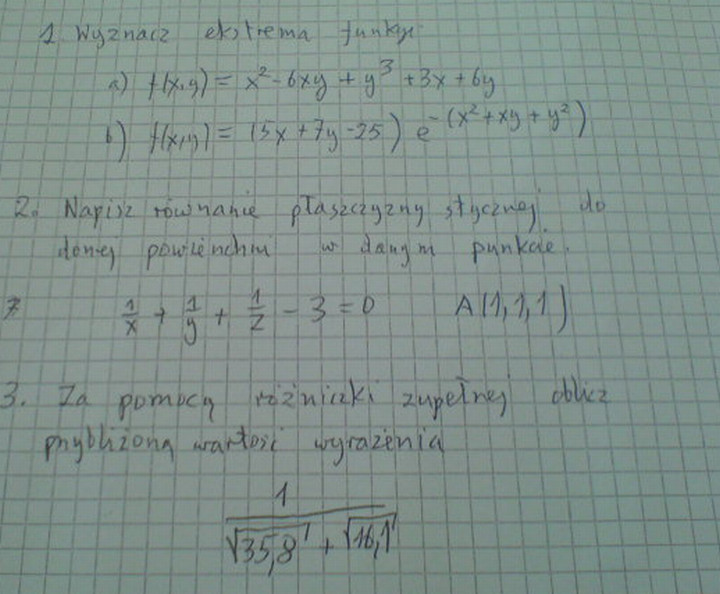 1. Wyznacz ekstrema funkcji
a) f(x,y) = x² - 6xy + y³ + 3x + 6y
b) f(x,y) = (5x + 7y - 25) e^-(x² + xy + y²)
2. Napisz równanie płaszczyzny stycznej do
danej powierzchni w danym punkcie.
1/x + 1/y + 1/z - 3 = 0 A(1,1,1)
3. Za pomocą różniczki zupełnej oblicz
przybliżoną wartość wyrażenia
1
√35,8 + √16,1